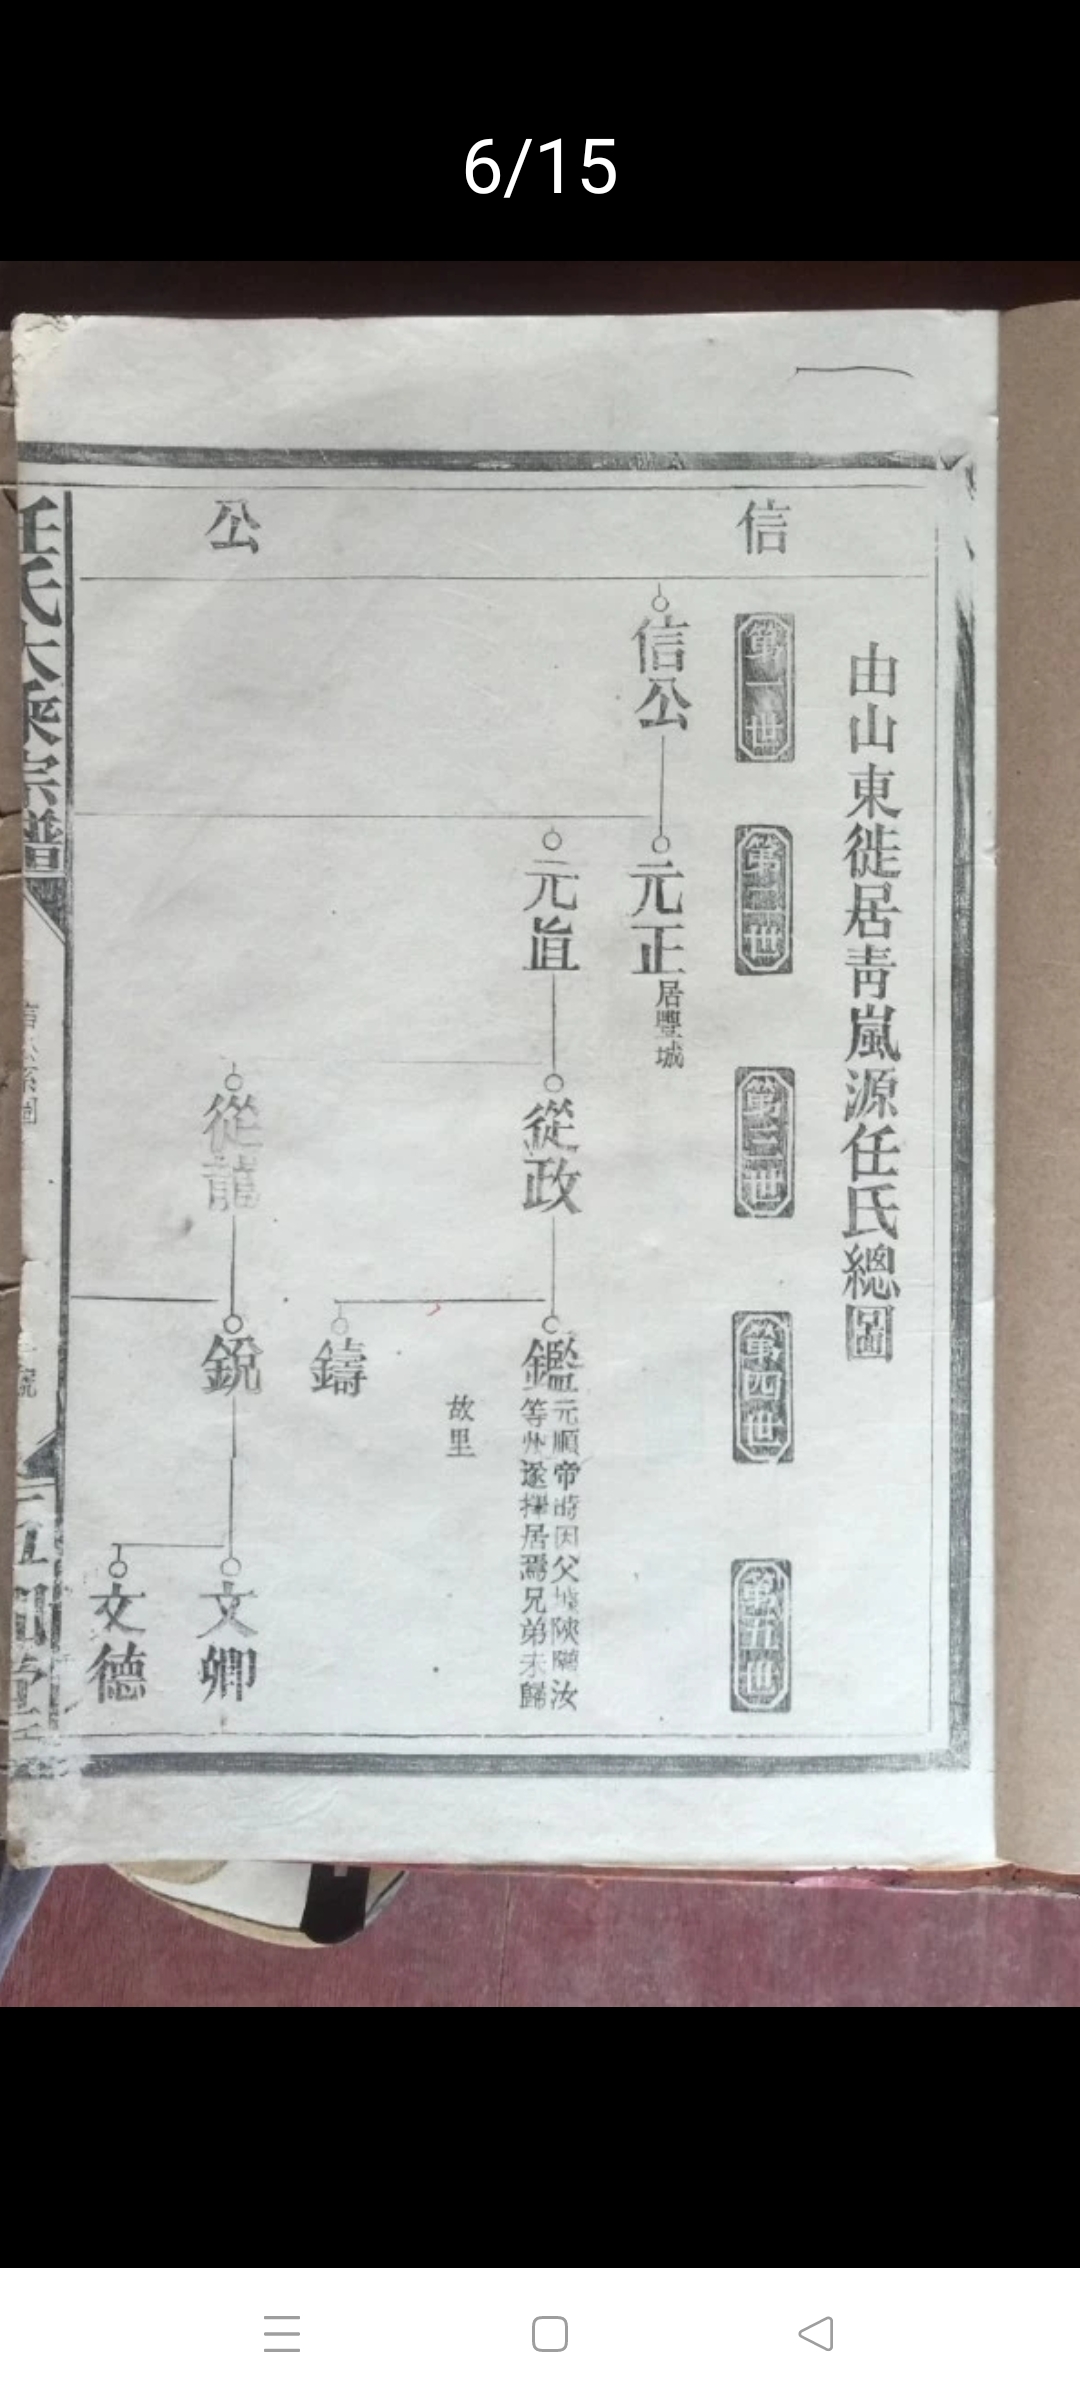 6/15
信
公
由山東徙居青嵐源任氏總圖
第一世
第二世
第三世
第四世
第五世
信公
元正
居豐城
元直
從政
從龍
鑑
元順帝時因父墳陝隴汝
等州遂擇居焉兄弟未歸
故里
鑄
銳
文卿
文德
任氏大乘宗譜
信公系圖